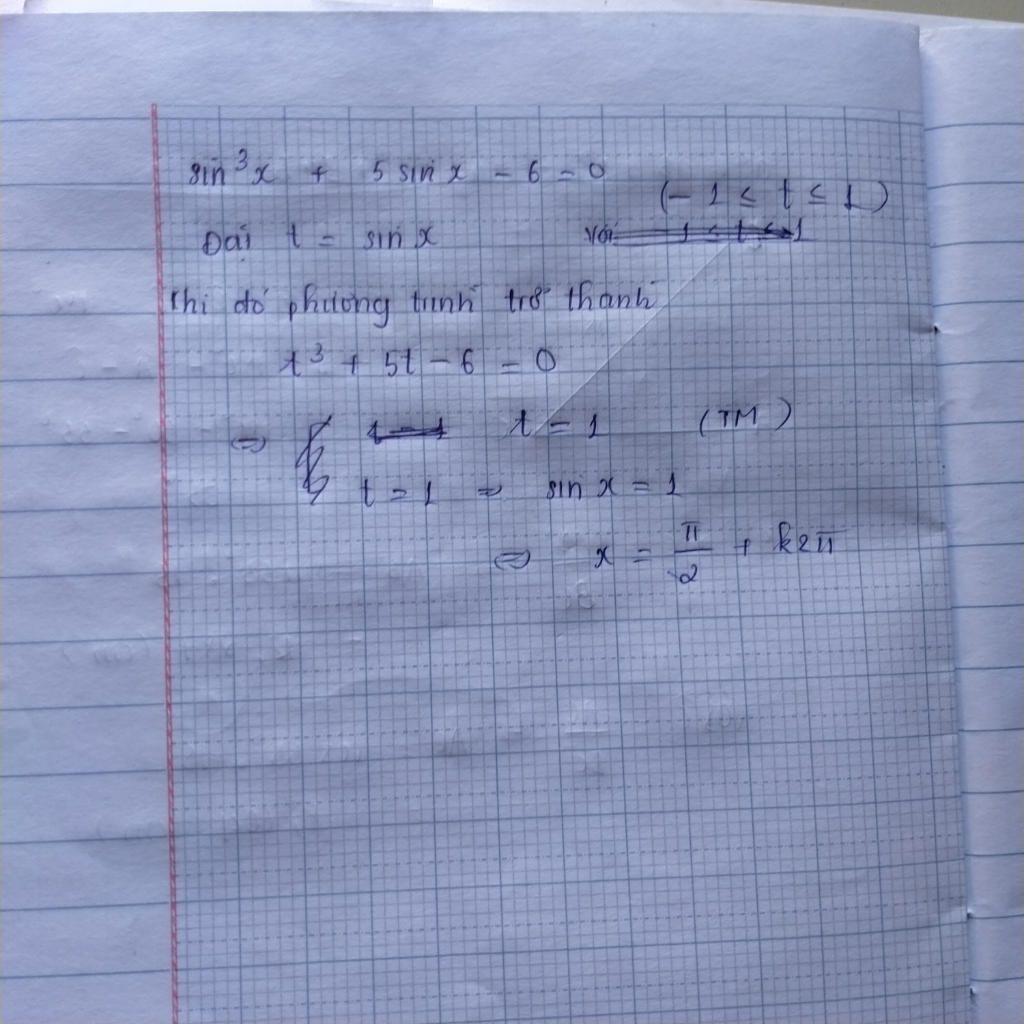 sin³x + 5 sin x - 6 = 0
(- 1 ≤ t ≤ 1)
Đặt t = sin x với - 1 ≤ t ≤ 1
Khi đó phương trình trở thành
t³ + 5t - 6 = 0
⇔ t = 1 (TM)
t = 1 ⇒ sin x = 1
⇔ x = π/2 + k2π